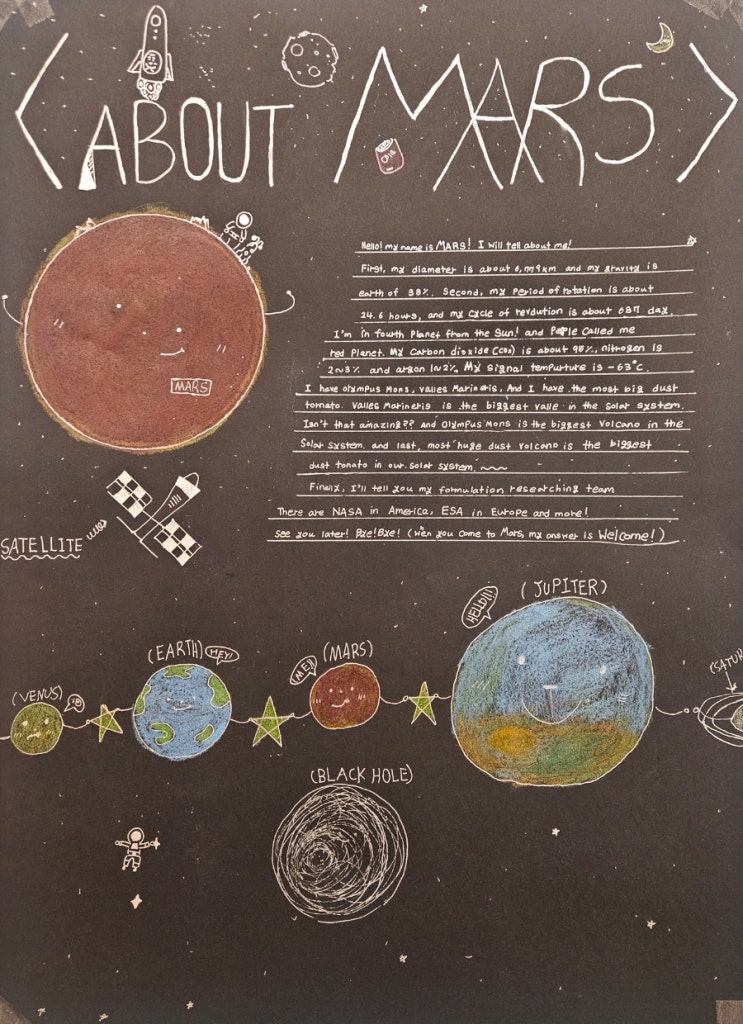 <ABOUT MARS>
COLA
Hello! my name is MARS! I will tell about me!
First, my diameter is about 6,779km and my gravity is
earth of 38%. Second, my period of rotation is about
24.6 hours, and my cycle of revolution is about 687 day.
I'm in fourth Planet from the Sun! and People called me
red Planet. My Carbon dioxide (CO2) is about 95%, nitrogen is
2~3% and argon 1~2%. My signal tempurture is -63°C.
I have Olympus Mons, Valles Marineris. And I have the most big dust
tornato. Valles Marineris is the biggest valle in the Solar system.
Isn't that amazing?? and Olympus Mons is the biggest Volcano in the
Solar system. and last, most huge dust volcano is the biggest
dust tonato in our solar system. ~~~
Finally, I'll tell you my formulation researching team
There are NASA in America, ESA in Europe and more!
See you later! Bye! Bye! (wen you come to Mars, my answer is Welcome!)
MARS
SATELLITE
(JUPITER)
HELLO!!!
(EARTH)
HEY!
(MARS)
ME!!
(VENUS)
(SATUR
(BLACK HOLE)